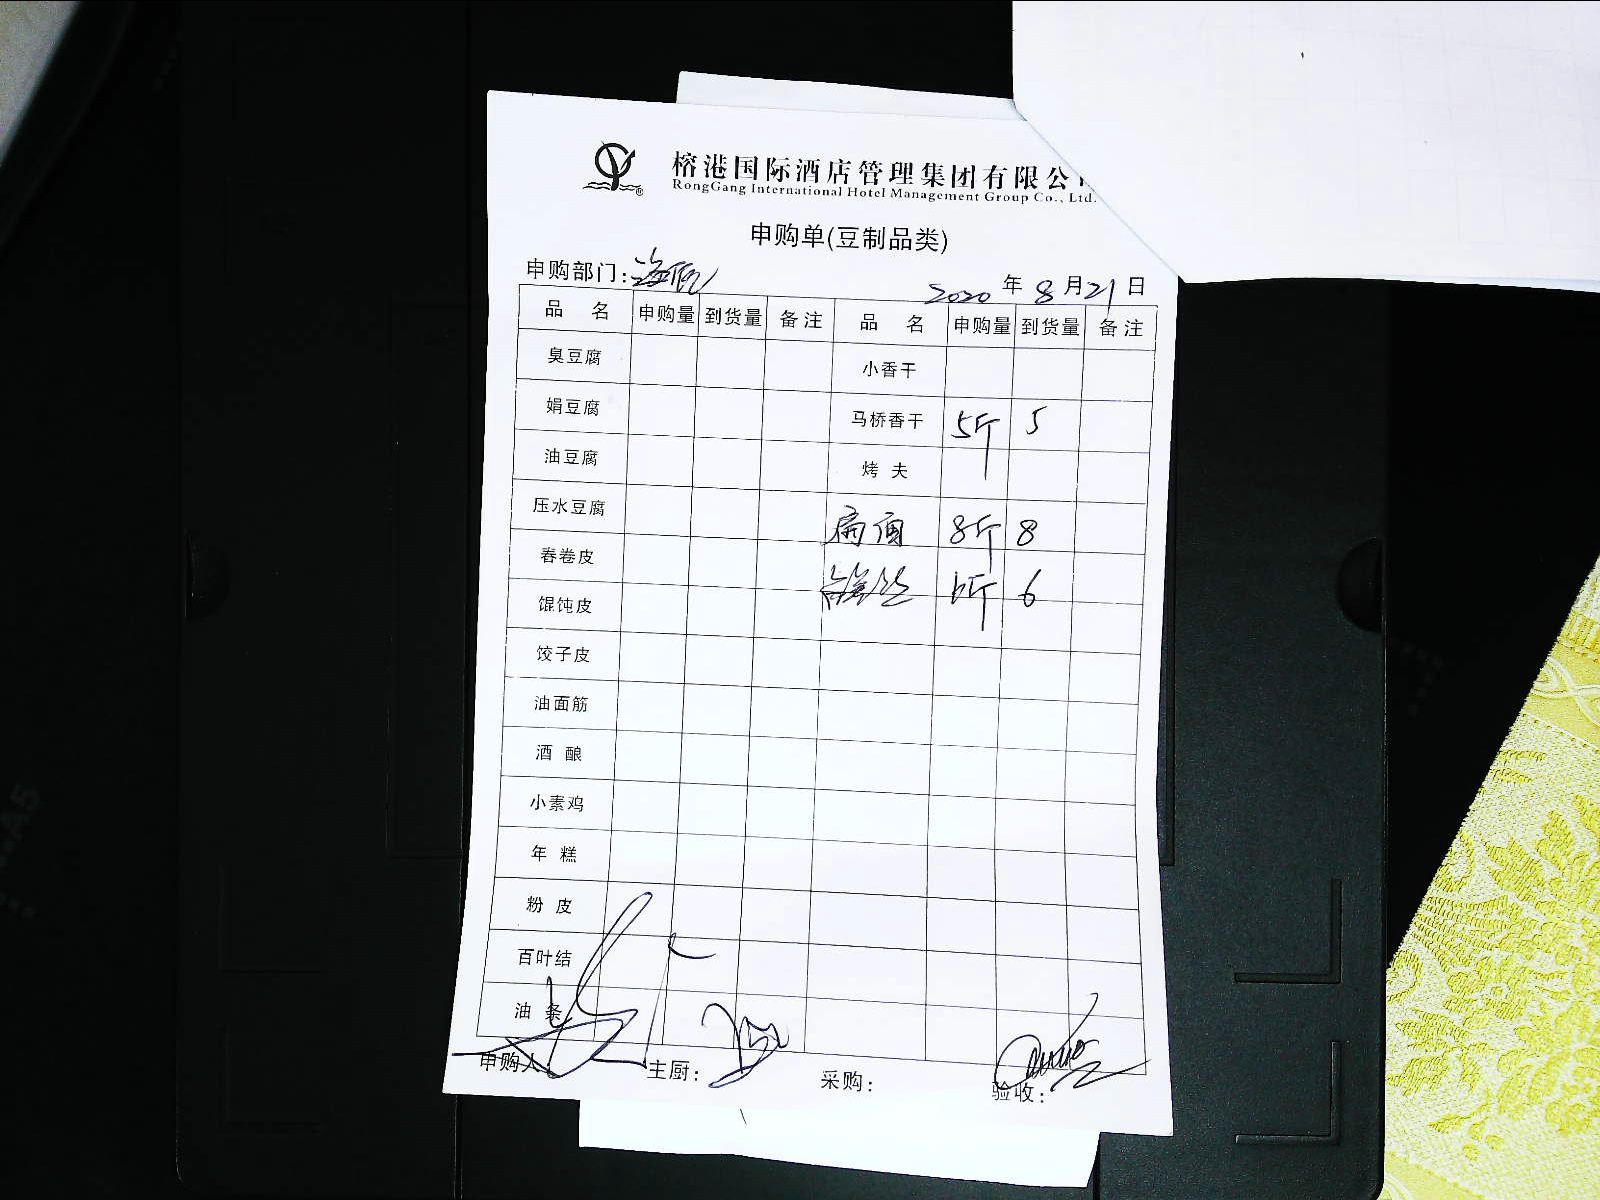 榕港国际酒店管理集团有限公
RongGang International Hotel Management Group Co., Ltd.
申购单(豆制品类)
申购部门:
2020 年 8 月 21 日
品 名 申购量 到货量 备注 品 名 申购量 到货量 备注
臭豆腐 小香干
娟豆腐 马桥香干 5斤 5
油豆腐 烤 夫
压水豆腐 8斤 8
春卷皮 6斤 6
馄饨皮
饺子皮
油面筋
酒 酿
小素鸡
年 糕
粉 皮
百叶结
油 条
申购人 主厨: 采购: 验收: